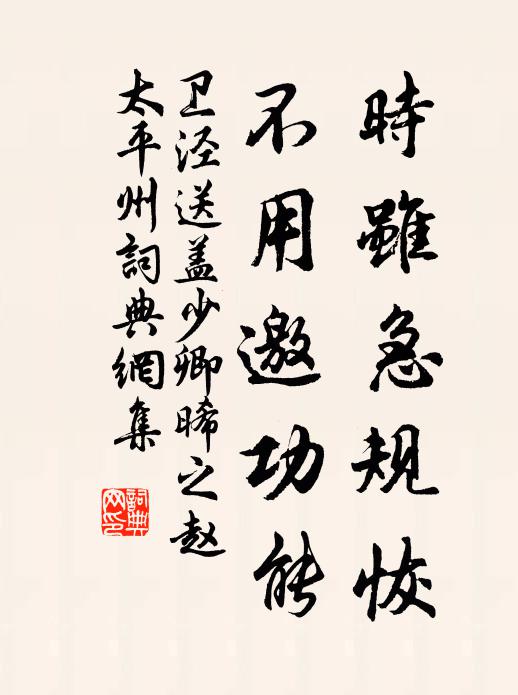 時雖急規恢
不用邀功能
卫泾送盖少卿晞之赵
太平州詞典網集
詞典网印